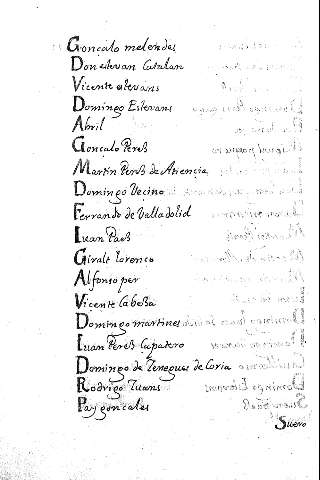 Goncalo melendes
Don estevan Catalan
Vicente estevans
Domingo Estevans
Abril
Gonçalo Peres
Martin Peres de Atiencia
Domingo Vecino
Ferrando de Valladolid
Iuan Paes
Giralt lorenco
Alfonso per
Vicente Cabesa
Domingo martines
Iuan Peres Capatero
Domingo de Coria
Rodrigo Iuans
Pay goncales
Suero